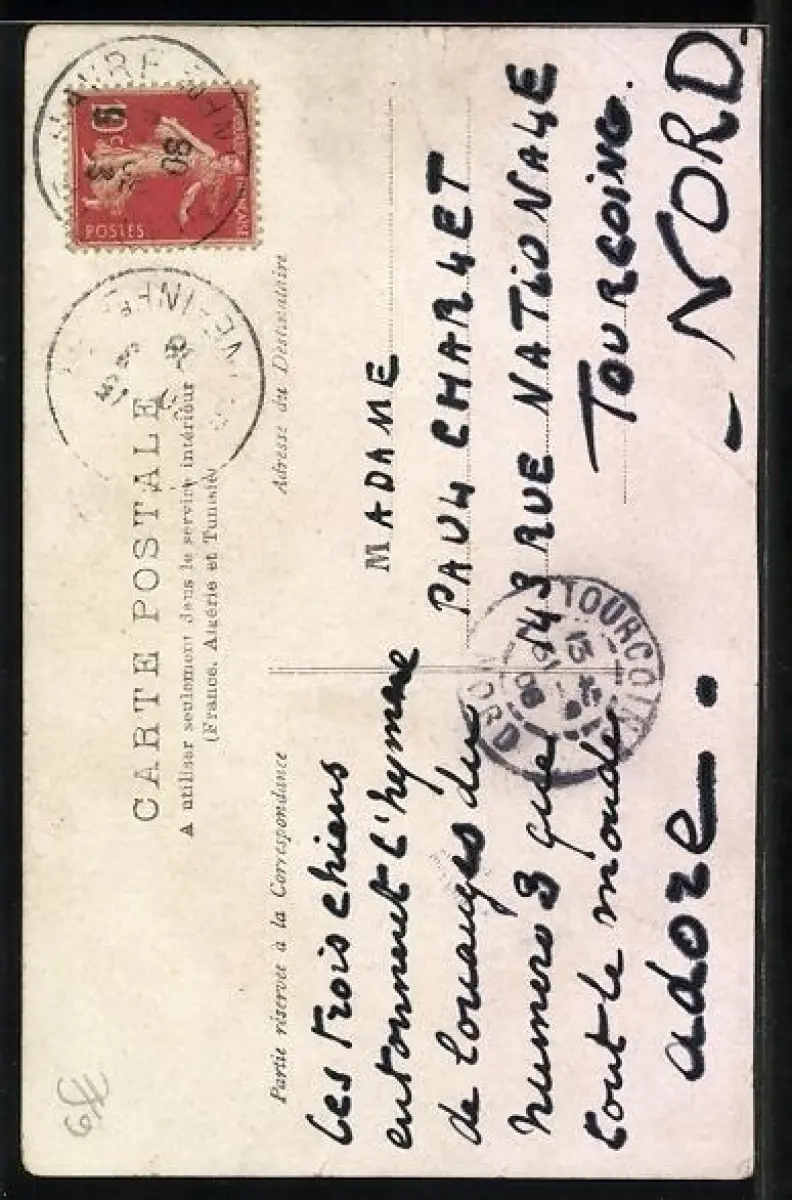 CARTE POSTALE
A utiliser seulement dans le service intérieur
(France, Algérie et Tunisie)
Partie réservée à la Correspondance
Les trois chiens
entonnent l'hymne
de louanges du
numéro 3 que
tout le monde
adore.
Adresse du Destinataire
MADAME
PAUL CHARLET
143 RUE NATIONALE
TOURCOING.
- NORD -
POSTES
10
FRANÇAISE
TOURCOING
NORD